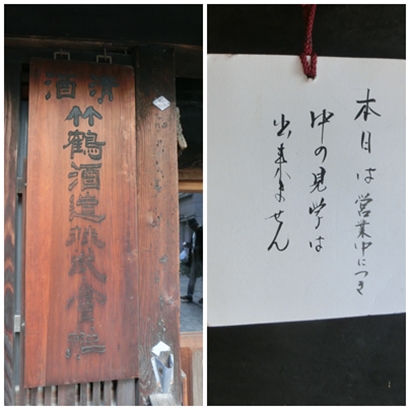 清酒
竹鶴酒造株式會社
本日は営業中につき
中の見学は
出来ません